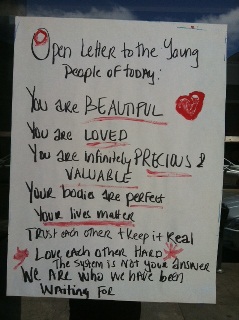 Open Letter to the Young
People of today:
You are BEAUTIFUL
You are LOVED
You are infinitely PRECIOUS &
VALUABLE
Your bodies are perfect
Your lives matter
Trust each other + keep it real
Love each other HARD
The System is Not your answer
We Are who we have been
Waiting For